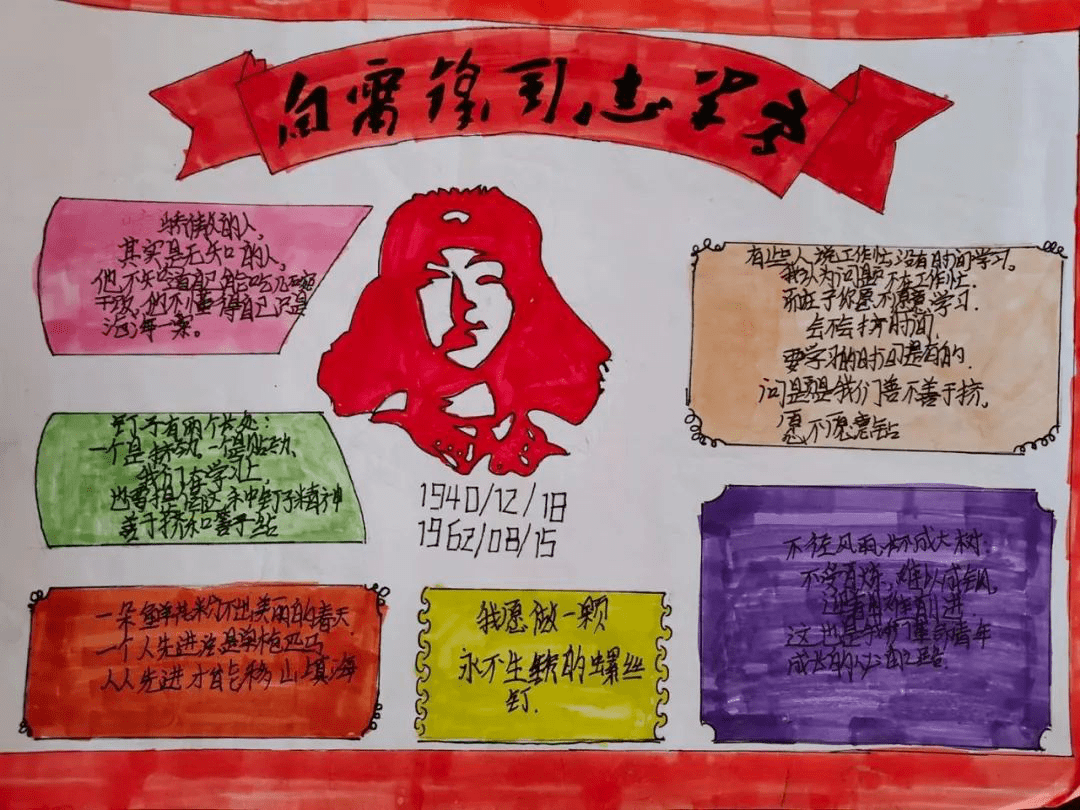 向雷锋同志学习
骄傲的人,
其实是无知的人,
他不知道自己能吃几碗
干饭,他不懂得自己只是
沧海一粟。
钉子有两个长处:
一个是挤劲,一个是钻劲,
我们在学习上,
也要提倡这种钉子精神
善于挤和善于钻
一朵鲜花打扮不出美丽的春天
一个人先进总是单枪匹马
人人先进才能移山填海
1940/12/18
1962/08/15
我愿做一颗
永不生锈的螺丝
钉.
有些人说工作忙没有时间学习。
我认为问题不在工作忙.
而在于你愿不愿意学习.
会不会挤时间,
要学习的时间是有的.
问题是我们善不善于挤,
愿不愿意钻
不经风雨,长不成大树.
不受百炼,难以成钢,
迎着困难前进.
这也是我们革命青年
成长的必由之路.